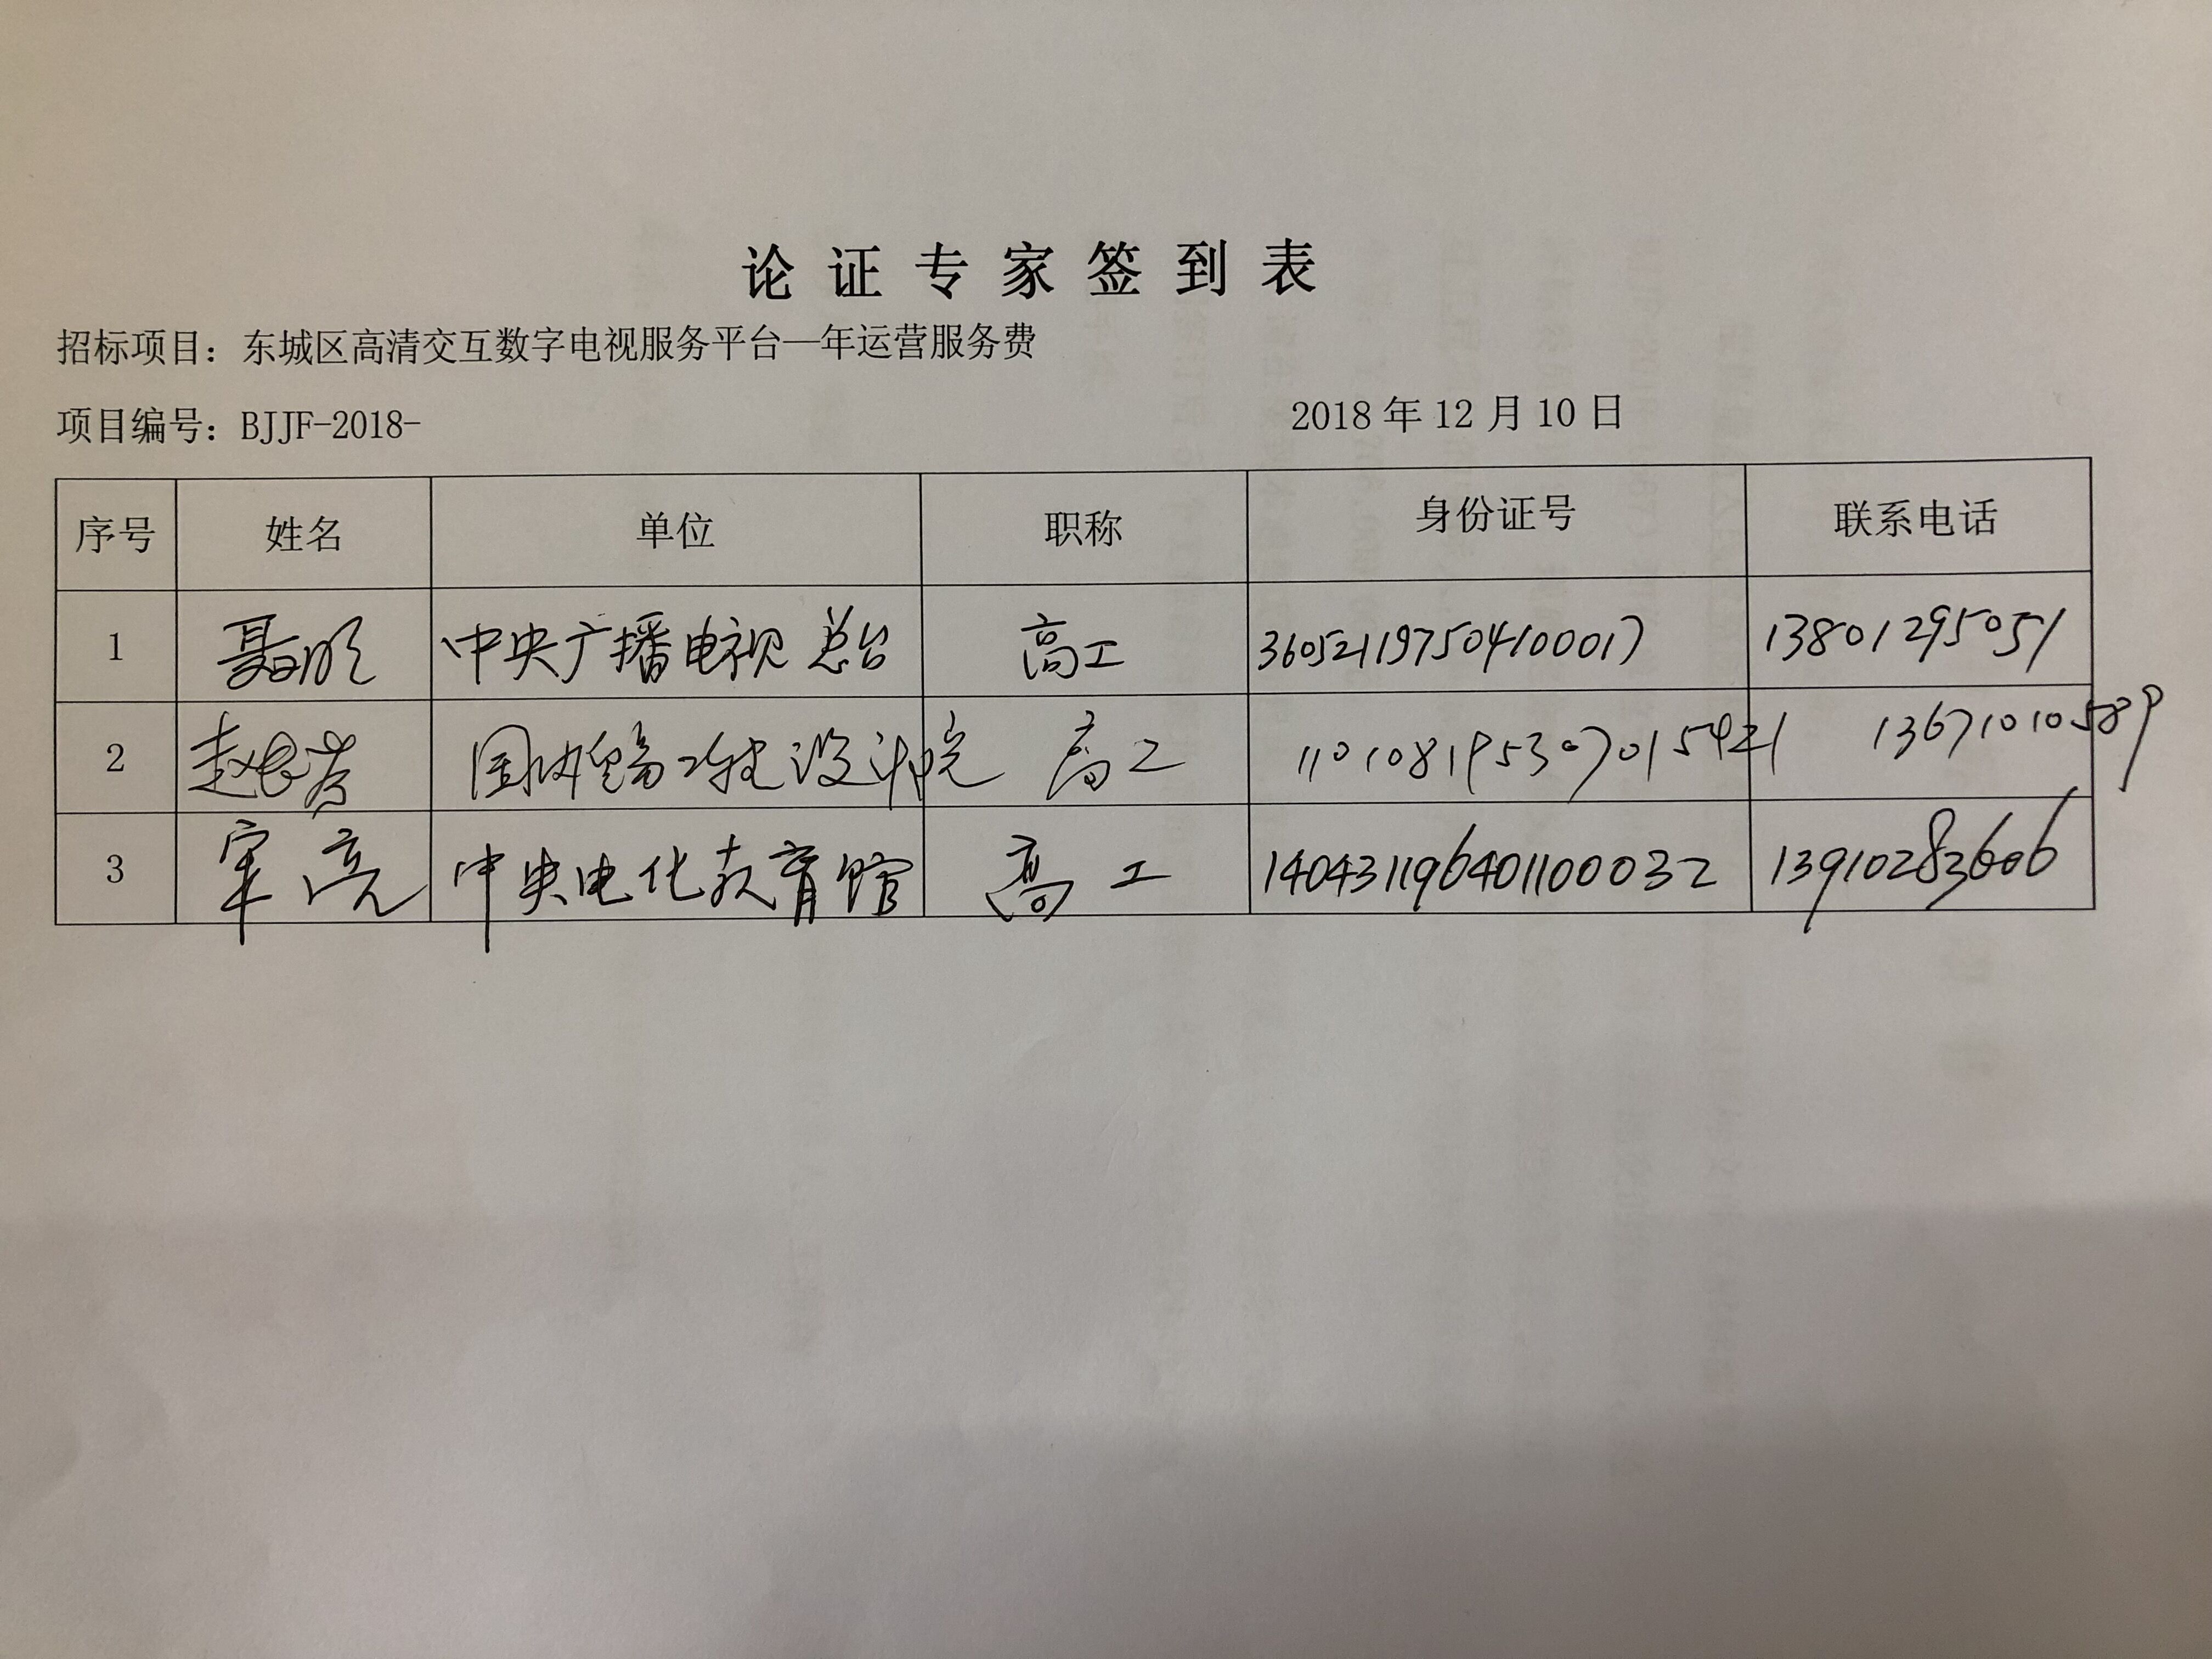 论证专家签到表
招标项目：东城区高清交互数字电视服务平台—年运营服务费
项目编号：BJJF-2018- 2018年12月10日
序号 姓名 单位 职称 身份证号 联系电话
1 聂明 中央广播电视总台 高工 360521197504100017 13801295051
2 赵 设计院 高工 110108195307015421 13671010589
3 宋亮 中央电化教育馆 高工 140431196401100032 13910283606